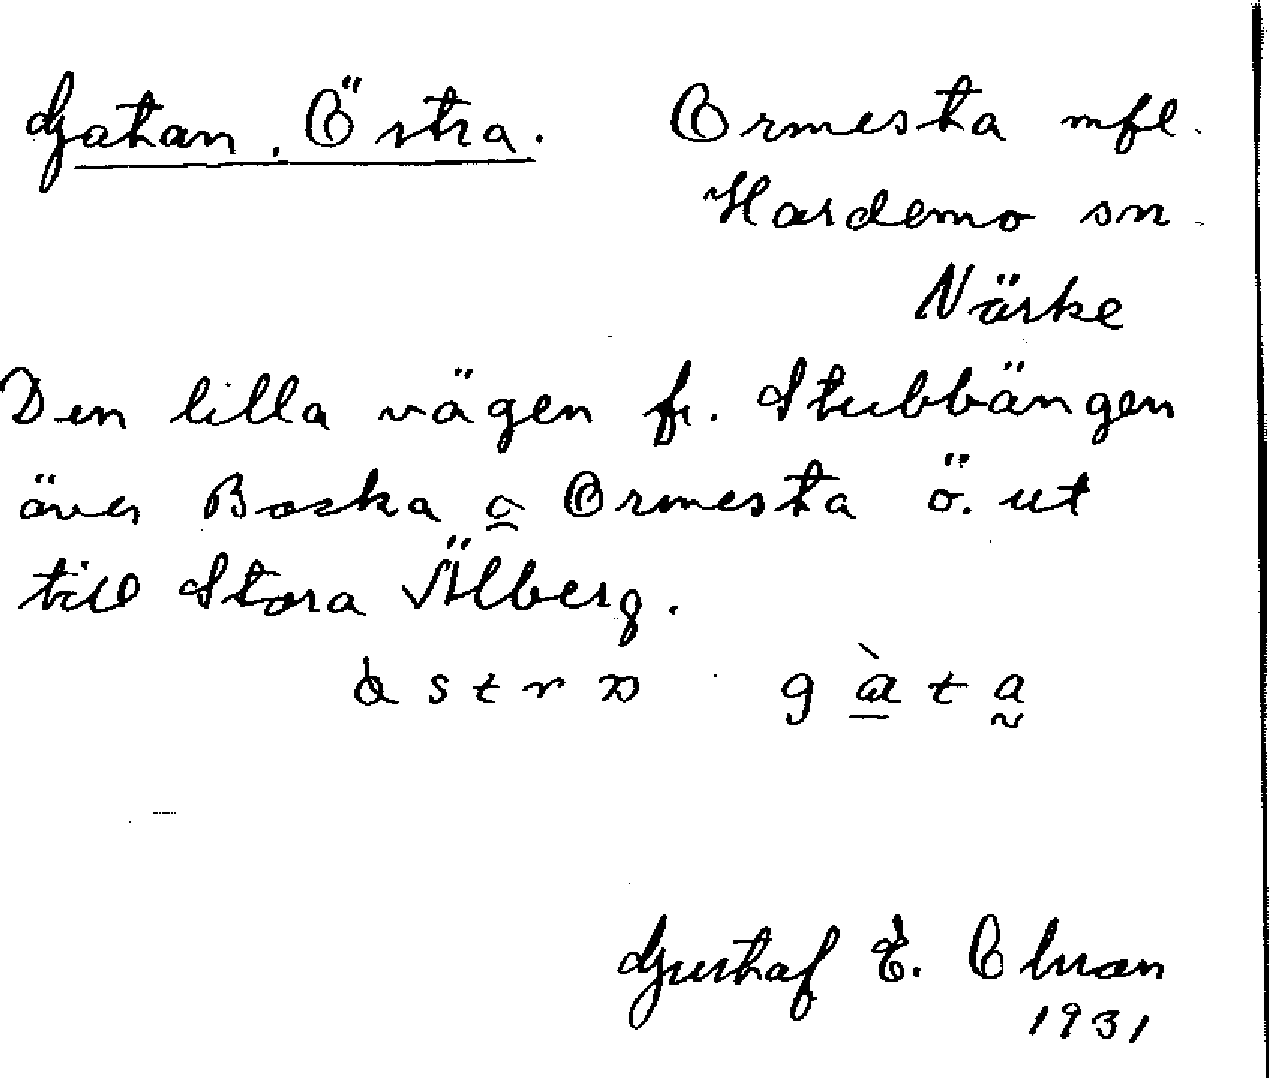 Gatan, Östra.
Ormesta mfl.
Hardemo sn.
Närke
Den lilla vägen fr. Stubbängen
över Backa o Ormesta ö. ut
till Stora Älberg.
gata
Gustaf E. Olsson
1931